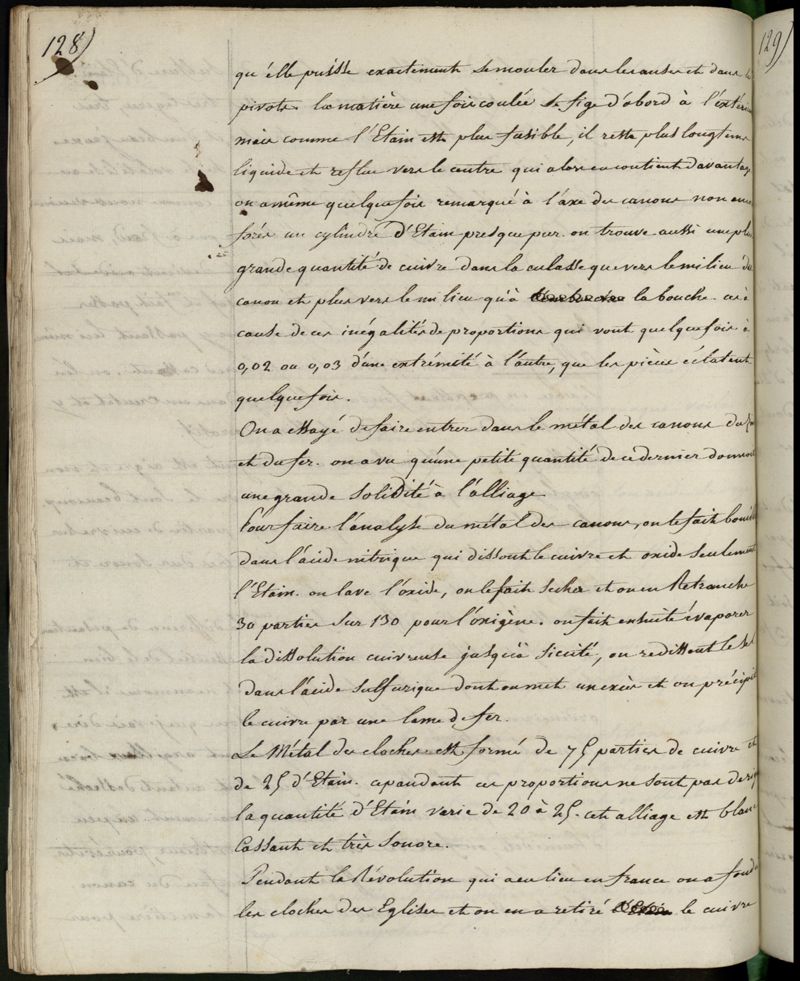 128)
129)
qu'elle puisse exactement se mouler dans les anses et dans les
pivots. La matière une fois coulée se fige d'abord à l'extérieur
mais comme l'Etain est plus fusible, il reste plus longtems
liquide et reflue vers le centre qui alors en contient davantage
on a même quelquefois remarqué à l'axe des canons non encore
forés un cylindre d'Etain presque pur. on trouve aussi une plus
grande quantité de cuivre dans la culasse que vers le milieu du
canon et plus vers le milieu qu'à la bouche. c'est à
cause de ces inégalités de proportions qui vont quelquefois à
0,02 ou 0,03 d'une extrémité à l'autre, que les pièces éclatent
quelquefois.
On a essayé de faire entrer dans le métal des canons du
et du fer. on a vu qu'une petite quantité de ce dernier donnoit
une grande solidité à l'alliage
Pour faire l'analyse du métal des canons, on le fait bouillir
dans l'acide nitrique qui dissout le cuivre et oxide seulement
l'Etain. on lave l'oxide, on le fait secher et on en Retranche
30 parties sur 130 pour l'oxigène. on fait ensuite évaporer
la dissolution cuivreuse jusqu'à siccité, on redissout le sel
dans l'acide sulfurique dont on met un excès et on précipite
le cuivre par une lame de fer.
Le Métal des cloches est formé de 75 parties de cuivre et
de 25 d'Etain. cependant ces proportions ne sont pas de
la quantité d'Etain varie de 20 à 25. cet alliage est blanc
Cassant et très sonore.
Pendant la Révolution qui a eu lieu en france on a fondu
les cloches des Eglises et on en a retiré le cuivre